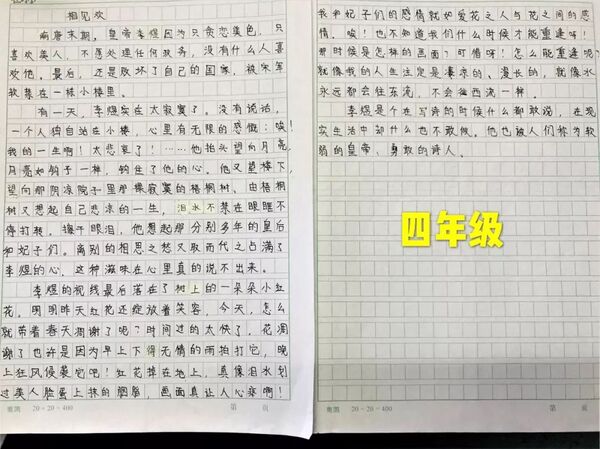 相见欢
南唐末期，皇帝李煜因为只贪恋美色，只
喜欢美人，不愿处理任何政务，没有什么人喜
欢他。最后，还是败坏了自己的国家，被宋军
软禁在一栋小楼里。
有一天，李煜实在太寂寞了。没有说话，
一个人独自站在小楼，心里有无限的感慨：唉！
我的一生啊！太悲哀了！……他抬头望向月亮
月亮如钩子一样，钩住了他的心。他又望楼下，
望向那阴凉院子里那棵寂寞的梧桐树、由梧桐
树又想起自己悲凉的一生，泪水不禁在眼眶不
停打转。擦干眼泪，他想起那分别多年的皇后
和妃子们。离别的相思之愁又取而代之占满了
李煜的心，这种滋味在心里真的说不出来。
李煜的视线最后落在了树上的一朵朵小红
花。明明昨天红花还绽放着笑容，今天，怎么
就带着春天凋谢了呢？时间过的太快了，花凋
谢了也许是因为早上下得无情的雨拍打它，晚
上狂风侵袭它吧！红花掉在地上，真像泪水划
过美人脸蛋上抹的胭脂，画面真让人心疼啊！
奥图 20×20=400 第 页
我和妃子们的感情就如爱花之人与花之间的感
情，唉！也不知道什么时候才能重逢呀！
那时候是怎样的画面？可惜呀！怎么能重逢呢？
就像我的人生注定是凄凉的、漫长的，就像水
永远都会往东流，不会往西流一样。
李煜是个在写诗的时候什么都敢说，在现
实生活中却什么也不敢做。他也被人们称为软
弱的皇帝、勇敢的诗人。
四年级
20×20=400 第 页